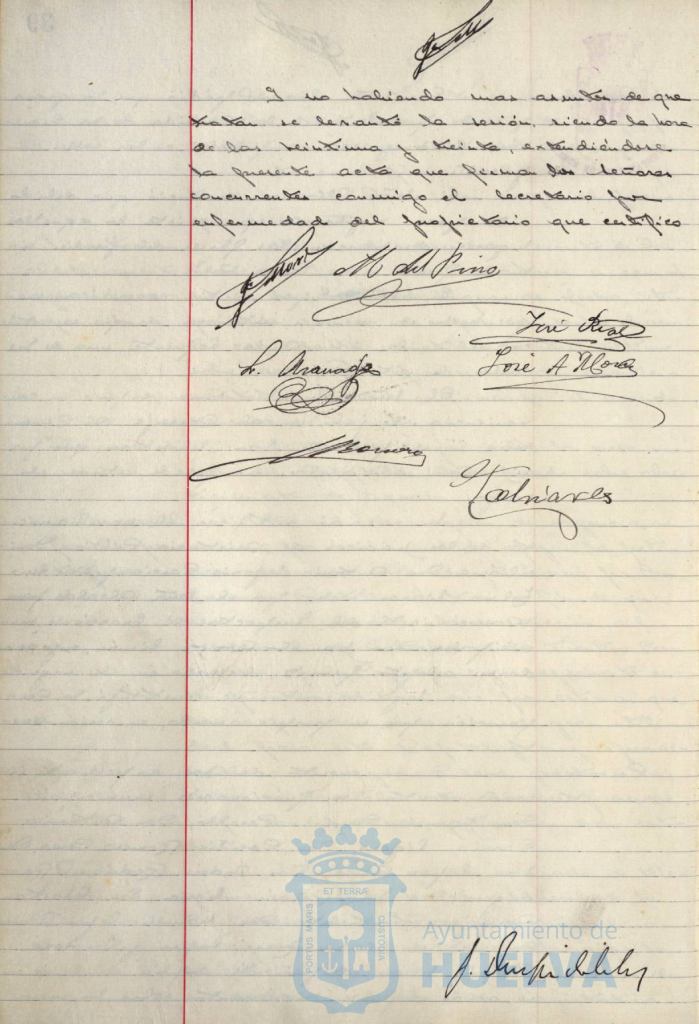 Y no habiendo mas asuntos de que
tratar se levantó la sesión, siendo la hora
de las veintiuna y treinta, extendiéndose
la presente acta que firman los señores
concurrentes conmigo el secretario por
enfermedad del propietario que certifico
M del Pino
José Real
José A Mora
Romero
ET TERRÆ
PORTUS MARIS
CUSTODIA
Ayuntamiento de
HUELVA